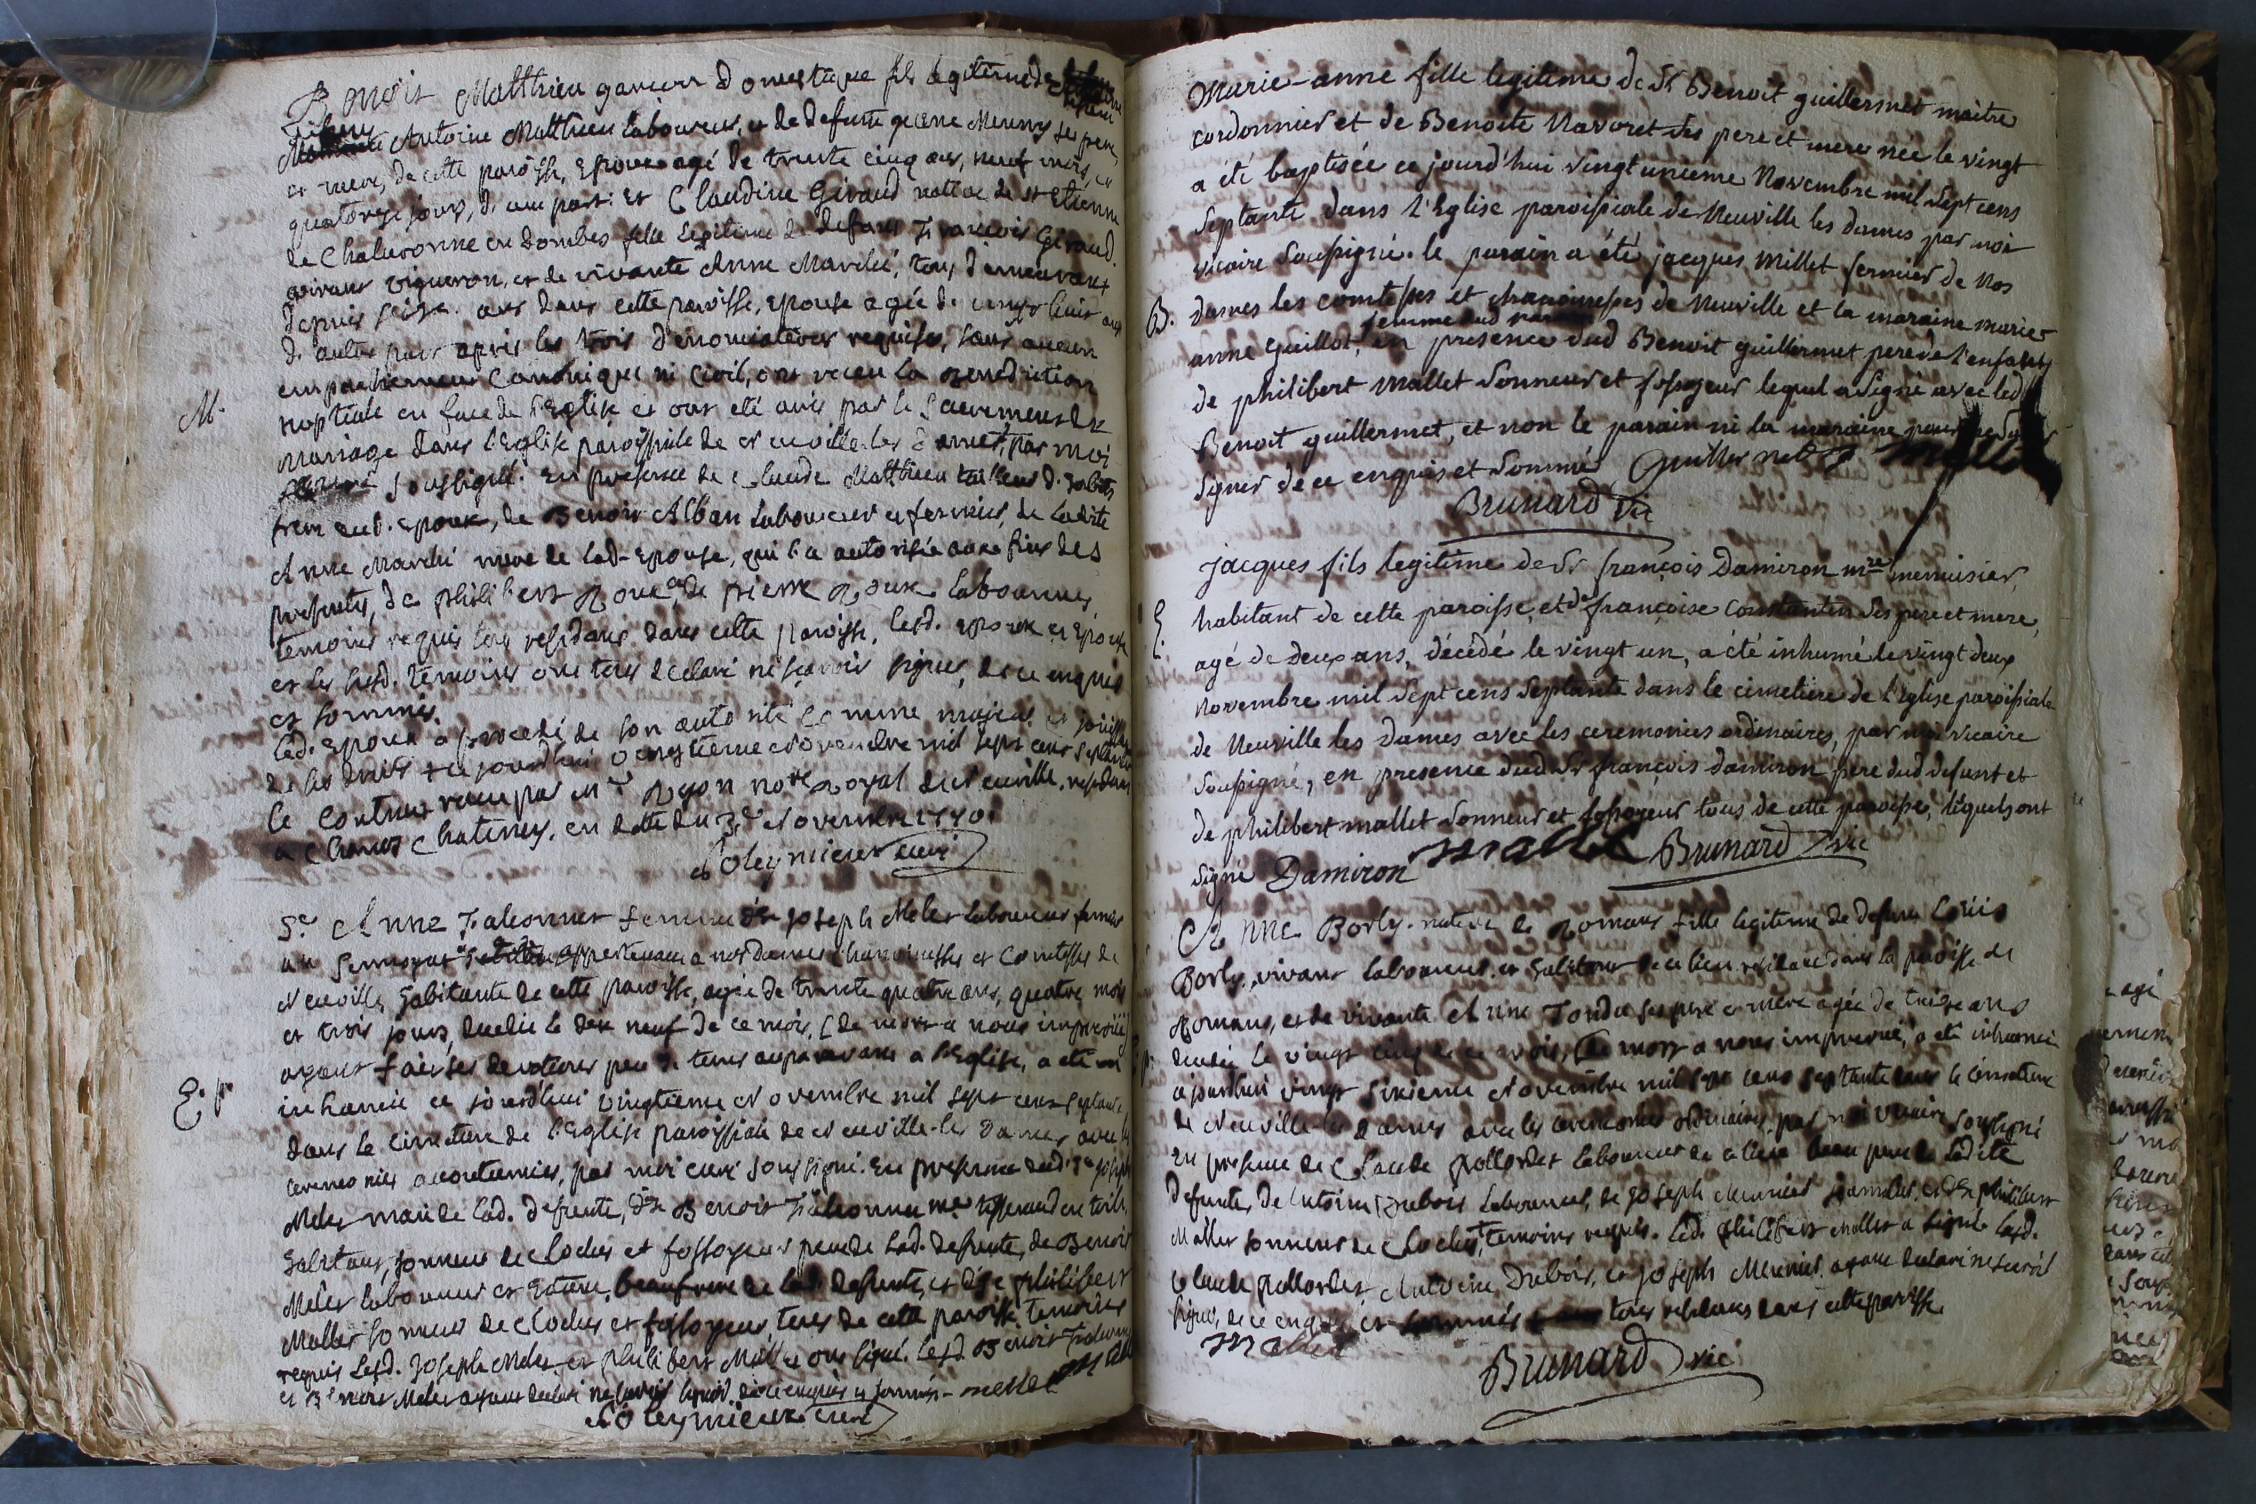 Benoit Matthieu garçon domestique fils legitime de
Antoine Matthieu laboureur, et de defunte Meuny ses pere,
et mere, de cette paroisse, Epoux agé de trente cinq ans, neuf mois, et
quatorze jours, d'une part: Et Claudine Giraud native de St Etienne
de Chalaronne en Dombes fille legitime de defunt François Giraud.
vivant vigneron, et de vivante Anne Marché, tous demeurant
depuis seize ans dans cette paroisse, epouse agée de vingt huit ans
d'autre part apres les trois dénonciations requises, sans aucun
empechement Canonique ni Civil, ont receu la Benediction
nuptiale en face de l'Eglise et ont eté unis par le Sacrement de
M. mariage dans l'Eglise paroissiale de Neuville les Dames, par moi
soussigné. En presence de Claude Matthieu tailleur d'habits
frere dud. Epoux, de Benoit Alban laboureur et fermier, de ladite
Anne Marché mere de lad. Epouse, qui l'a autorisée aux fins des
presentes, de philibert Roux, de pierre Roux laboureurs,
temoins requis tous residans dans cette paroisse. Lesd. epoux et Epouse
et les susd. temoins ont tous declaré ne sçavoir signer, de ce enquis
et sommés.
led. Epoux a procedé de son autorité comme majeur et
de ses droits ce jourdhui vingtieme Novembre mil sept cens septante
le Contrat receu par Mre Ryon nore Royal de Neuville, residant
a Chatenay. en datte du 3e Novembre 1770.
Poleymieux curé
Anne Falconnet femme de Sr Joseph Melet laboureur fermier
au appartenant a nos Dames Chanoinesses et Comtesses de
Neuville, habitante de cette paroisse, agée de trente quatre ans, quatre mois
et trois jours, decedée le dix neuf de ce mois, (de mort a nous imprevue)
ayant fait ses devotions peu de tems auparavant a l'Eglise, a eté
E. inhumée ce jourd'hui vingtieme Novembre mil sept cens septante,
dans le cimetiere de l'Eglise paroissiale de Neuville-les Dames, avec les
ceremonies accoutumées, par moi curé soussigné. En presence dud. Sr joseph
Melet mari de lad. defunte, de Benoit Falconnet me tisserand en toile,
habitant, sonneur de Cloches et fossoyeur pere de lad. defunte, de Benoit
Melet laboureur et beaufrere de lad. defunte, et de philibert
Mallet sonneur de Cloches et fossoyeur, tous de cette paroisse temoins
requis Lesd. Joseph Melet et philibert Mallet ont signé. Lesd. Benoit Falconnet
et Benoit Melet ayant declaré ne sçavoir signer, de ce enquis et sommés. melet
Poleymieux curé
Marie-anne fille legitime de Sr Benoit guillermet maitre
cordonnier et de Benoite Navoret ses pere et mere née le vingt
a été baptisée ce jourd'hui vingt unieme Novembre mil sept cens
septante dans l'Eglise paroissiale de Neuville les dames par moi
vicaire soussigné. le parain a été jacques Millet fermier de Nos
B. dames les comtesses et chanoinesses de Neuville et la maraine marie
anne Guillot, femme dud parain en presence dud Benoit guillermet pere de l'enfant,
de philibert mallet Sonneur et fossoyeur lequel a signé avec led
Benoit guillermet, et non le parain ni la maraine pour ne savoir
signer de ce enquis et sommés Guillermet mallet
Brunard vic
E. jacques fils legitime de Sr françois Damiron mre menuisier,
habitant de cette paroisse, et de françoise Constantin ses pere et mere,
agé de deux ans, décédé le vingt un, a été inhumé le vingt deux
novembre mil sept cens septante dans le cimetiere de l'Eglise paroissiale
de Neuville les Dames avec les ceremonies ordinaires, par moi vicaire
soussigné, en presence dud Sr françois damiron pere dud defunt et
de philibert mallet sonneur et fossoyeur tous de cette paroisse, lequels ont
signé Damiron mallet Brunard vic
Anne Borly native de Romans fille legitime de defunt Loüis
Borly, vivant laboureur et habitant de ce lieu residant dans la paroisse de
Romans, et de vivante Anne Tondu ses pere et mere agée de treize ans
decedée le vingt cinq de ce mois, (de mort a nous imprevue) a eté inhumée
ajourdhui vingt sixieme Novembre mil sept cens septante dans le cimetiere
de Neuville-les Dames avec les ceremonies ordinaires, par moi vicaire soussigné
en presence de Claude Pollordet laboureur de ce lieu beau pere de ladite
defunte, de Antoine Dubois laboureur, de Joseph Meunier journalier, et de philibert
Mallet sonneur de Cloches, temoins requis. Led. philibert Mallet a signé Lesd.
Claude Pollordet, Antoine Dubois, et joseph Meunier ayant declaré ne savoir
signer, de ce enquis et sommés tous residans dans cette paroisse
mallet
Brunard vic